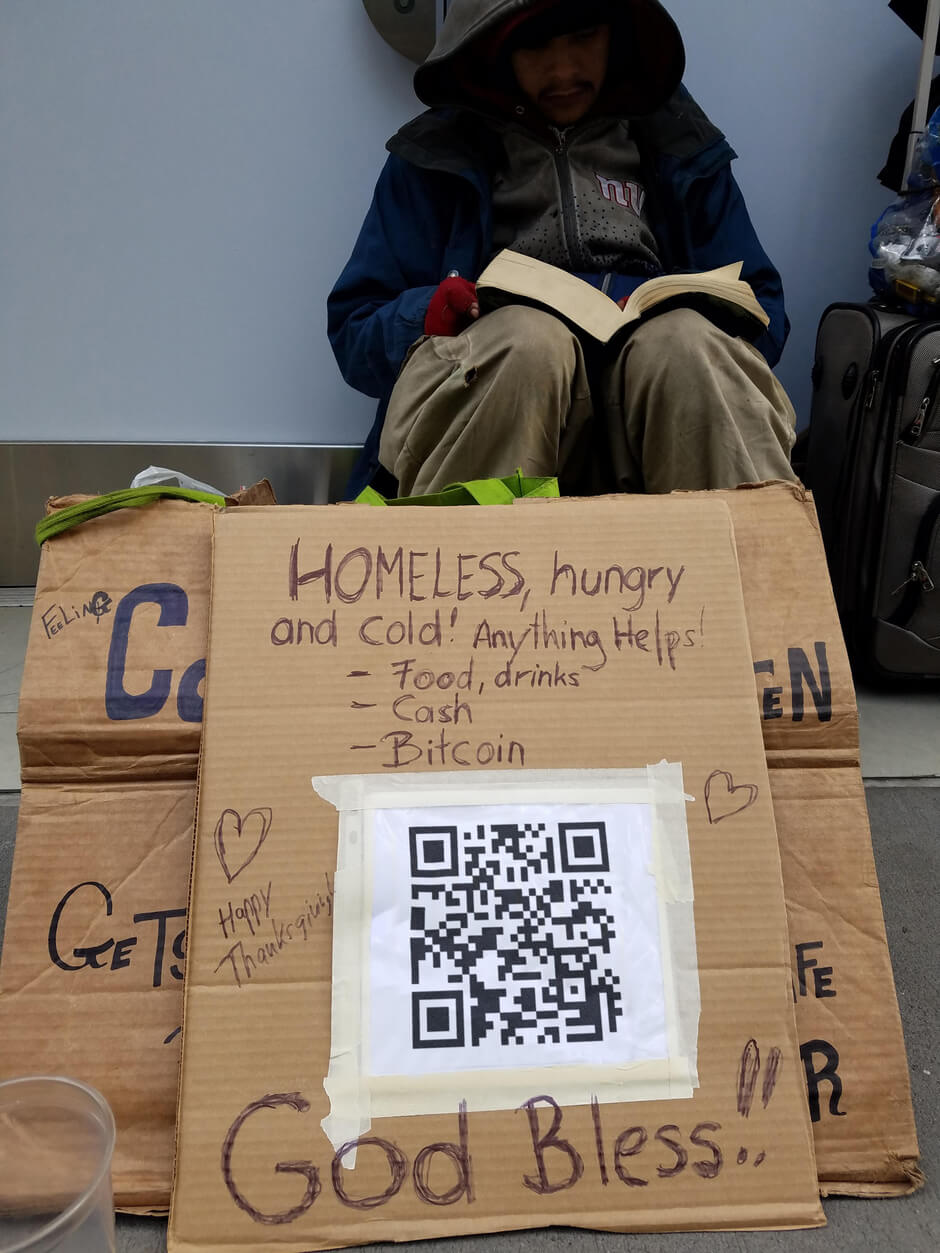 HOMELESS, hungry
and cold! Anything Helps!
- Food, drinks
- Cash
- Bitcoin
Happy
Thanksgiving!
God Bless!!
FEELING
GETS